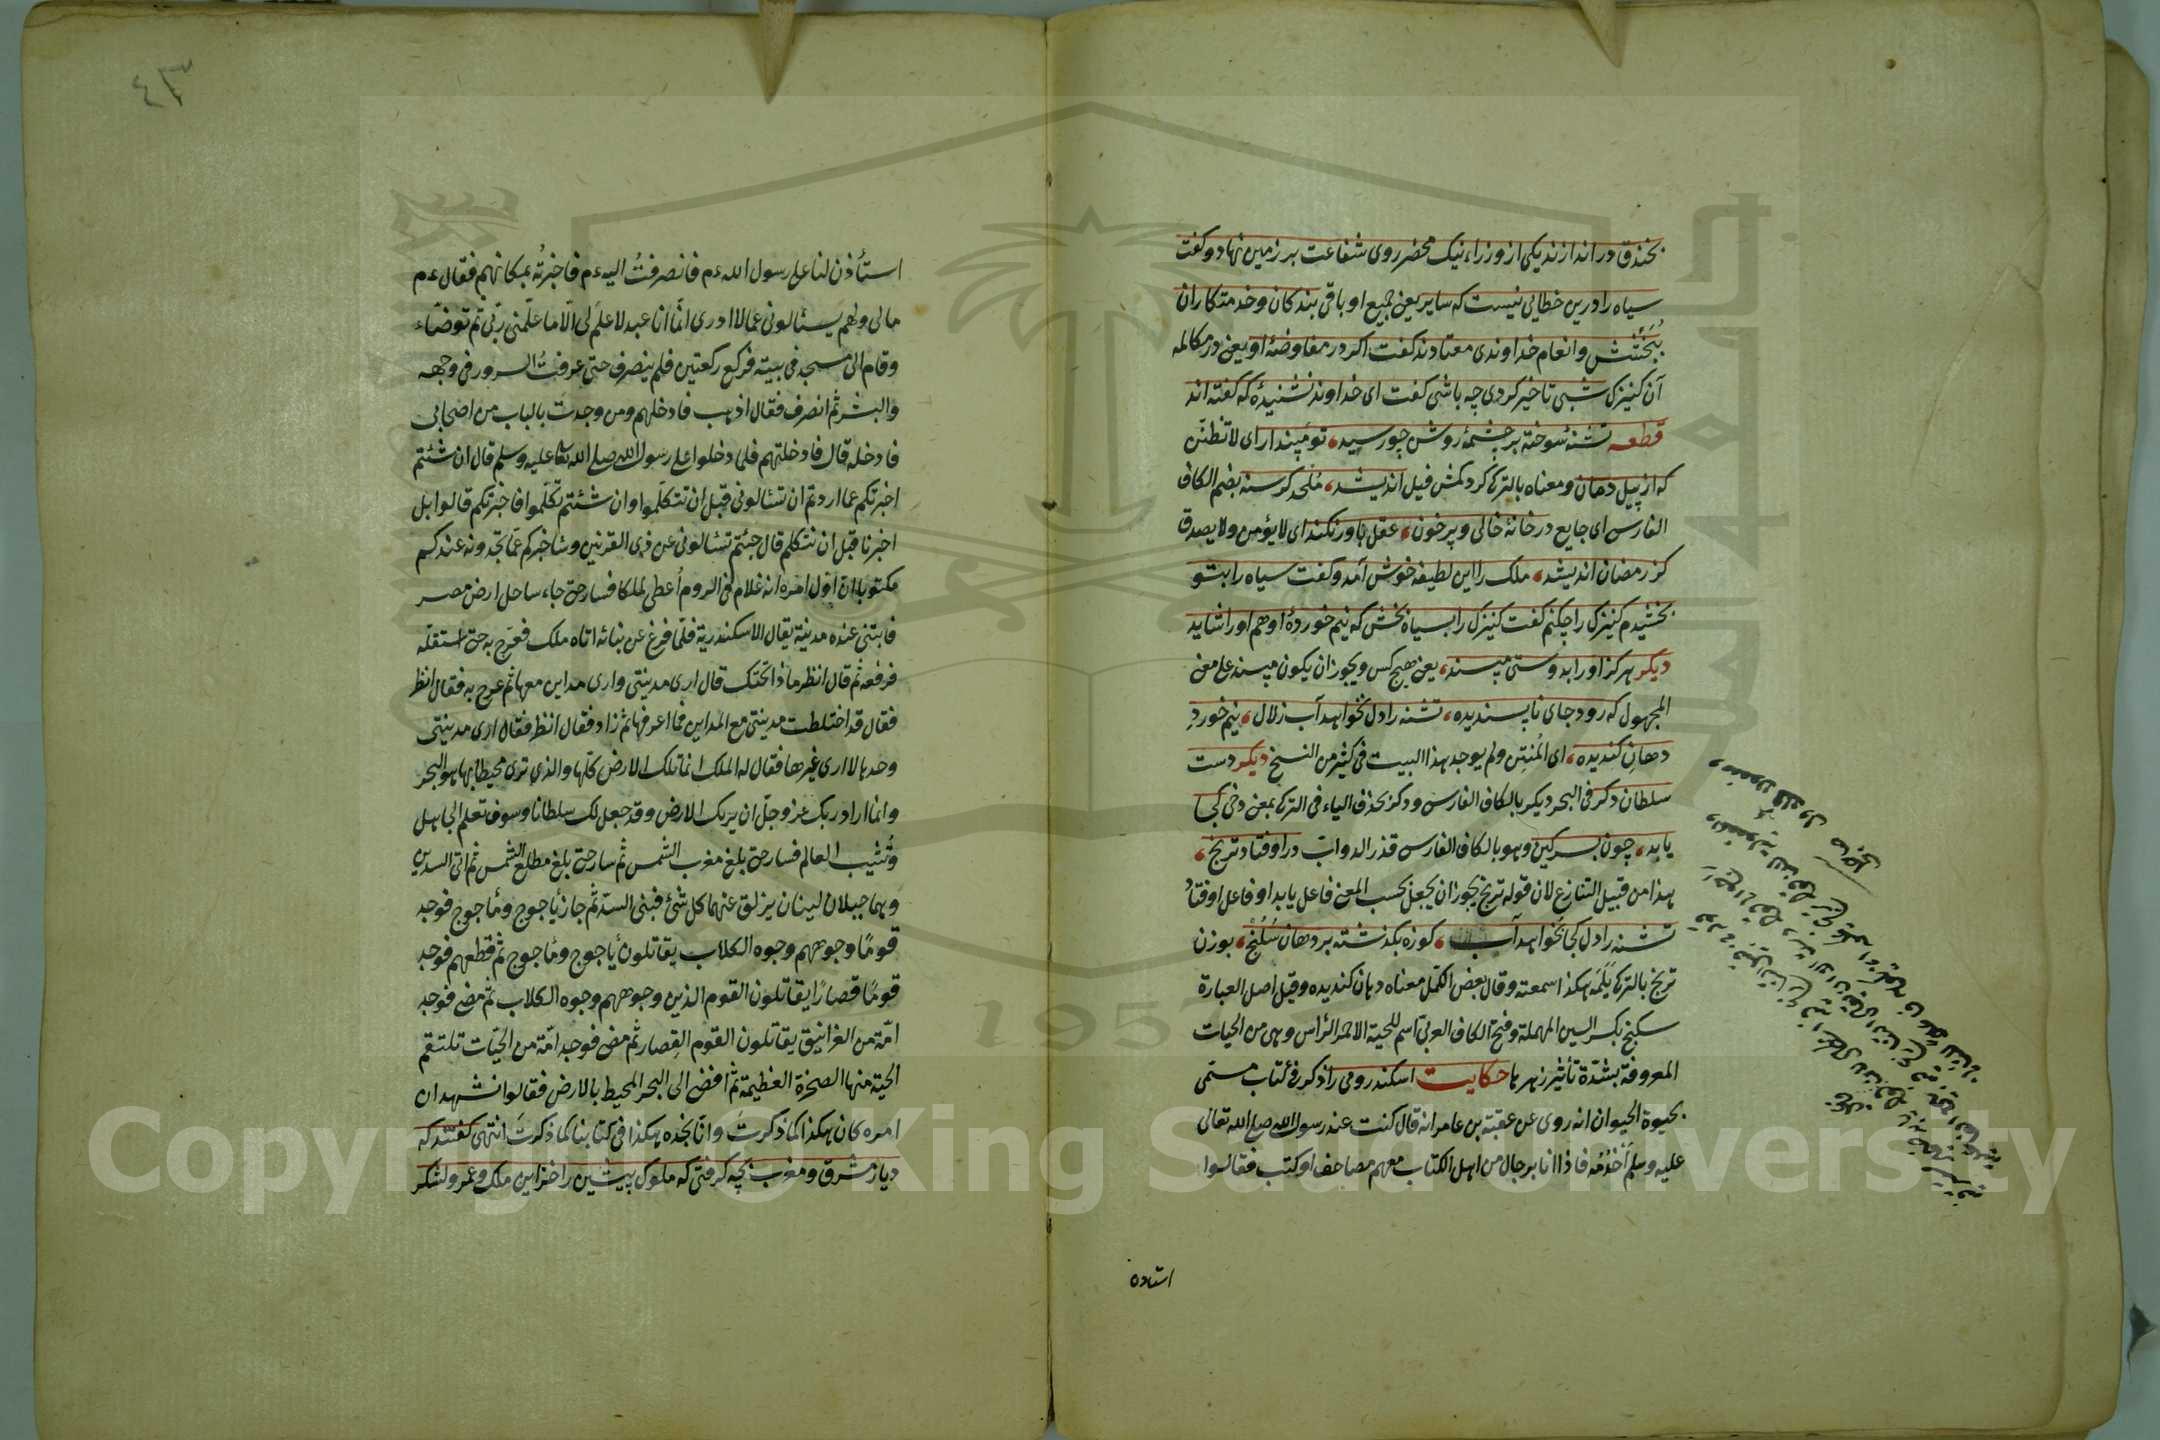 بخندق در اندازند یکی از وزراء نیک محضر روی شفاعت بر زمین نهاد و گفت
سیاه را درین خطایی نیست که سایر یعنی جمیع او باقی بندکان و خدمتکاران
بُبَخْشَش و انعام خداوندی معتادند کفت اکر در مفاوضهٔ او یعنی در مکالمه
آن کنیزک شبی تاخیر کردی چه باشی کفت ای خداوند نشنیدهٔ که کفته اند
قطعه تشنهٔ سوخته بر چشمهٔ روشن چو رسید، تو مپندار ای لا تظنّن
که از پیل دمان و معناه بالترکی کردکمش فیل اندیشد، مُلحد کرسنه بضم الکاف
الفارسی ای جایع در خانهٔ خالی و پر خون، عقل باور نکند ای لا یؤمن ولا یصدق
کز رمضان اندیشد، ملک را این لطیفه خوش آمد و کفت سیاه را بتو
بخشیدم کنیزک را چکنم کفت کنیزک را بسیاه بخش که نیم خوردهٔ او هم او را شاید
دیکر هرکز او را بدوستی مپسند، یعنی هیچ کس ویجوز ان یکون مپسند علی معنی
المجهول که رود جای ناپسندیده، تشنه را دل نخواهد آب زلال، نیم خوردِ
دهان کندیده، ای المُنتِن ولم یوجد هذا البیت فی کثیر من النسخ دیکر دست
سلطان دکر فی البحر دیکر بالکاف الفارسی ودکر بحذف الیاء فی الترکی بمعنی دخی کجا
یابد، چون بسرکین وهو بالکاف الفارسی قذر الدواب در اوفتاد ترنج،
هذا من قبیل التنازع لان قوله ترنج یجوز ان یجعل بحسب المعنی فاعل یابد او فاعل اوفتاد
تشنه را دل کجا بخواهد آب، کوزه بکذشته بر دهان سُکُنْج، بوزن
ترنج بالترکی هکذا سمعته وقال بعض الکمّل معناه دهان کندیده وقیل اصل العبارة
سکنج بکسر السین المهملة وفتح الکاف العربی اسم للحیة الاحمر الرأس وهی من الحیات
المعروفة بشدّة تأثیر زهرها حکایت اسکندر رومی را ذکر فی کتاب مسمّی
بحیوة الحیوان انه روی عن عقبة بن عامر انه قال کنت عند رسول الله صلی الله تعالی
علیه وسلم اَخْدُمُه فاذا انا برجال من اهل الکتاب معهم مصاحف او کتب فقالوا
استاذه
٤٣
استأذن لنا علی رسول الله ءم فانصرفتُ الیه ءم فاخبرتُه بمکانهم فقال ءم
مالی ولهم یسئالونی عما لا ادری انّما انا عبد لا علم لی الّا ما علّمنی ربّی ثم توضّأ
وقام الی مسجد فی بیته فرکع رکعتین فلم ینصرف حتی عرفتُ السرور فی وجهه
والبشر ثم انصرف فقال اذهب فادخلهم ومن وجدتَ بالباب من اصحابی
فادخله قال فادخلتهم فلما دخلوا علی رسول الله صلی الله تعالی علیه وسلم قال ان شئتم
اخبرتکم عما اردتم ان تسئالونی قبل ان تتکلّموا وان شئتم تکلّموا فاخبرتکم قالوا بل
اخبرنا قبل ان نتکلم قال جئتم تسئالونی عن ذی القرنین وساخبرکم عمّا تجدونه عندکم
مکتوبا ان اوّل امره انه غلام فی الروم اُعطی ملکا فسار حتی جاء ساحل ارض مصر
فابتنی عنده مدینة یقال الاسکندریة فلمّا فرغ عن بنائه اتاه ملک فعرّج به حتی استقلّه
فرفعه ثم قال انظر ماذا تحتک قال اری مدینتی واری مداین معها ثم عرج به فقال انظر
فقال قد اختلطت مدینتی مع المداین فما اعرفها ثم زاد فقال انظر فقال اری مدینتی
وحدها لا اری غیرها فقال له الملک انما تلک الارض کلّها والذی تری محیطا بها هو البحر
وانما اراد ربک عز وجلّ ان یریک الارض وقد جعل لک سلطانا وسوف تعلم الجاهل
وتُثیب العالم فسار حتی بلغ مغرب الشمس ثم سار حتی بلغ مطلع الشمس ثم اتی السدین
وهما جبلان لینان یزلق عنهما کل شئ فبنی السدّ ثم جاز یأجوج ومأجوج فوجد
قومًا وجوههم وجوه الکلاب یقاتلون یأجوج ومأجوج ثم قطعهم فوجد
قومًا قصارًا یقاتلون القوم الذین وجوههم وجوه الکلاب ثم مضی فوجد
امّة من الغرانیق یقاتلون القوم القصار ثم مضی فوجد امّة من الحیّات تلتقم
الحیة منها الصخرة العظیمة ثم افضی الی البحر المحیط بالارض فقالوا نشهد ان
امره کان هکذا کما ذکرتَ وانا نجده هکذا فی کتابنا کما ذکرتَ انتهی کفتند که
دیار مشرق و مغرب بچه کرفتی که ملوک پیشین را خزاین و ملک و عمر و لشکر
Copyright © King Saud University
1957